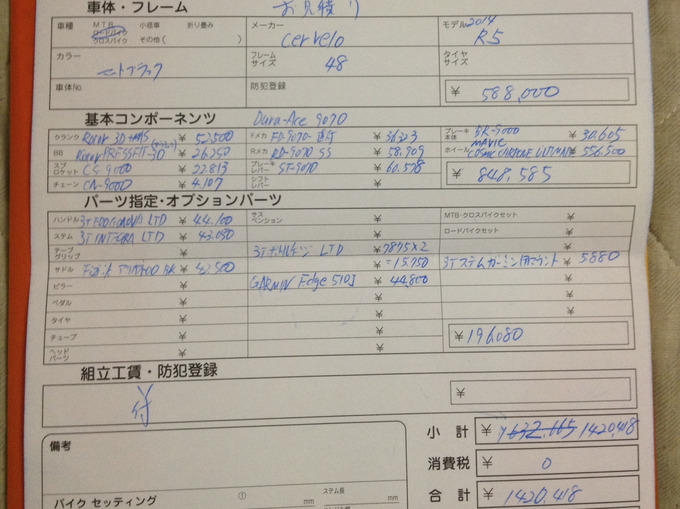 車体・フレーム お見積り
車種 MTB 小径車 折り畳み
ロードバイク
クロスバイク その他( )
メーカー cervelo
モデル 2014 R5
カラー マットブラック
フレームサイズ 48
タイヤサイズ
車体No.
防犯登録
¥ 588,000
基本コンポーネンツ Dura-Ace 9070
クランク Rotor 3D+ ¥ 52,500
Fメカ FD-9070 ¥ 36,323
ブレーキ本体 BR-9000 ¥ 30,605
BB Rotor PRESSFIT ¥ 26,250
Rメカ RD-9070 SS ¥ 58,909
ホイール MAVIC COSMIC CARBONE ULTIMATE ¥ 556,500
スプロケット CS-9000 ¥ 22,813
ブレーキレバー ST-9070 ¥ 60,578
チェーン CN-9000 ¥ 4,107
シフトレバー ¥
¥ 848,585
パーツ指定・オプションパーツ
ハンドル 3T LTD ¥ 44,100
サスペンション ¥
MTB・クロスバイクセット
ステム 3T INTEGRA LTD ¥ 43,050
¥
ロードバイクセット
テープグリップ ¥
3T LTD ¥ 7875×2
¥
サドル ¥ 42,500
¥ =15,750
3Tステムガーミン用マウント ¥ 5880
ピラー ¥
GARMIN Edge 510J ¥ 44,800
¥
ペダル ¥
¥
¥
タイヤ ¥
¥
チューブ ¥
¥
¥ 196,080
ヘッドパーツ ¥
¥
組立工賃・防犯登録
¥
小計 ¥ 1,632,665 1420,418
備考
消費税 ¥ 0
合計 ¥ 1420,418
バイク セッティング ① mm ステム長 mm